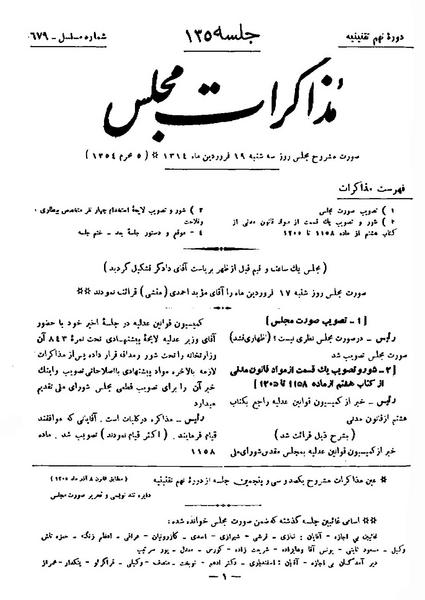 دورهٔ نهم تقنینیه
جلسه ۱۳۵
شماره مسلسل - ۶۷۹
مذاکرات مجلس
صورت مشروح مجلس روز سه شنبه ۱۹ فروردین ماه ۱۳۱۴ * (۵ محرم ۱۳۵۴)
فهرست مذاکرات
۱) تصویب صورت مجلس
۲) شور و تصویب یك قسمت از مواد قانون مدنی از
کتاب هشتم از ماده ۱۱۵۸ تا ۱۲۰۵
۳) شور و تصویب لایحهٔ استخدام چهار نفر متخصص بیطاری و
وفلاحت
۴ - موقع و دستور جلسهٔ بعد - ختم جلسه
(مجلس یك ساعت و نیم قبل از ظهر بریاست آقای دادگر تشکیل گردید)
صورت مجلس روز شنبه ۱۷ فروردین ماه را آقای مؤید احمدی (منشی) قرائت نمودند **
[۱ - تصویب صورت مجلس]
رئیس - درصورت مجلس نظری نیست؟ (اظهاری نشد)
صورت مجلس تصویب شد
[۲ - شور و تصویب یك قسمت از مواد قانون مدنی
از کتاب هشتم از ماده ۱۱۵۸ تا ۱۲۰۵]
رئیس - خبر از کمیسیون قوانین عدلیه راجع بکتاب
هشتم از قانون مدنی
(بشرح قبل قرائت شد)
خبر از کمیسیون قوانین عدلیه بمجلس مقدس شورای ملی
کمیسیون قوانین عدلیه در جلسهٔ اخیر خود با حضور
آقای وزیر عدلیه لایحهٔ پیشنهادی تحت نمرهٔ ۸۴۳ آن
وزارتخانه را تحت شور و مداقه قرار داده پس از مذاکرات
لازمه بالاخره مواد پیشنهادی با اصلاحاتی تصویب و اینك
خبر آن را برای تصویب قطعی مجلس شورای ملی تقدیم
میدارد
رئیس - مذاکره در کلیات است. آقایانی که موافقند
قیام فرمایند. (اکثر قیام نمودند) تصویب شد. ماده
۱۱۵۸
* عین مذاکرات مشروح یکصد و سی و پنجمین جلسه از دورهٔ نهم تقنینیه
(مطابق قانون ۸ آذر ماه ۱۳۰۵)
دایره تند نویسی و تحریر صورت مجلس
** اسامی غائبین جلسه گذشته که ضمن صورت مجلس خوانده شده:
غائبین بی اجازه - آقایان: نمازی - قرشی - شیرازی - اسدی - کازرونیان - عراقی - اعظم زنگنه - حمزه تاش
وکیلی - مسعود ثابتی - یونس آقا وهابزاده - شریعت زاده - کورس - معدل - پور سرتیپ
دیر آمدگان بی اجازه - آقایان: اسفندیاری - دکتر ادهم - نوبخت - منصف - وکیلی - قراگزلو - پنکدار - عمراد
- ۱ -